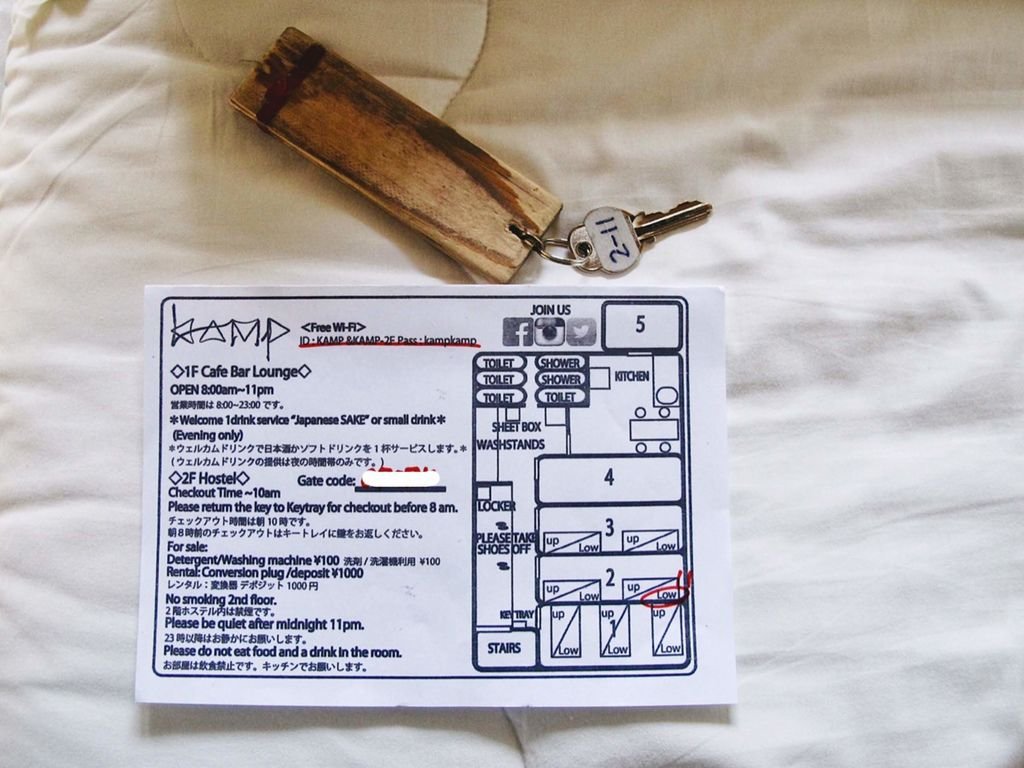 2-11
KAMP
<Free Wi-Fi>
ID : KAMP &KAMP-2F Pass : kampkamp
◇1F Cafe Bar Lounge◇
OPEN 8:00am~11pm
営業時間は 8:00~23:00 です。
*Welcome 1drink service "Japanese SAKE" or small drink*
(Evening only)
*ウェルカムドリンクで日本酒かソフトドリンクを 1 杯サービスします。*
(ウェルカムドリンクの提供は夜の時間帯のみです。)
◇2F Hostel◇ Gate code:
Checkout Time ~10am
Please return the key to Keytray for checkout before 8 am.
チェックアウト時間は朝 10 時です。
朝 8 時前のチェックアウトはキートレイに鍵をお返しください。
For sale:
Detergent/Washing machine ¥100 洗剤 / 洗濯機利用 ¥100
Rental: Conversion plug /deposit ¥1000
レンタル : 変換器 デポジット 1000 円
No smoking 2nd floor.
2 階ホステル内は禁煙です。
Please be quiet after midnight 11pm.
23 時以降はお静かにお願いします。
Please do not eat food and a drink in the room.
お部屋は飲食禁止です。キッチンでお願いします。
JOIN US
5
TOILET SHOWER
TOILET SHOWER
TOILET TOILET
KITCHEN
SHEET BOX
WASHSTANDS
4
LOCKER
PLEASE TAKE
SHOES OFF
3
up Low up Low
2
up Low up Low
KEYTRAY
1
up Low up Low up Low
STAIRS
11